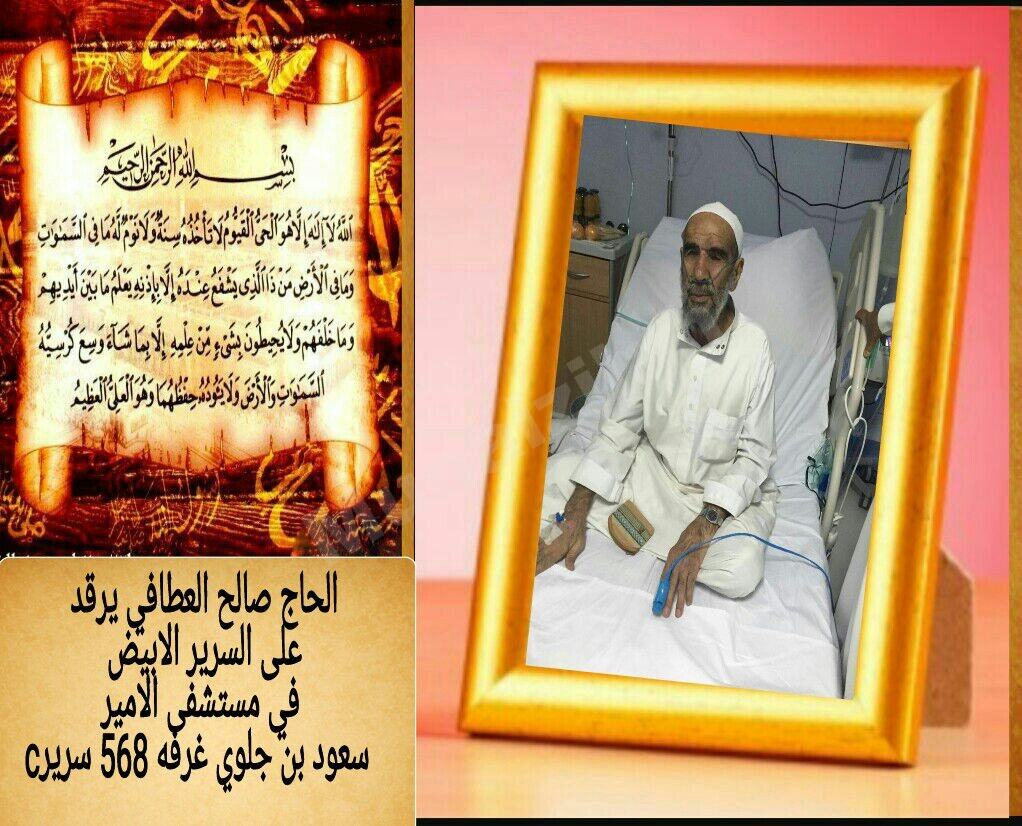 بِسْمِ اللَّهِ الرَّحْمَنِ الرَّحِيمِ
اللَّهُ لَا إِلَهَ إِلَّا هُوَ الْحَيُّ الْقَيُّومُ لَا تَأْخُذُهُ سِنَةٌ وَلَا نَوْمٌ لَّهُ مَا فِي السَّمَوَتِ
وَمَا فِي الْأَرْضِ مَن ذَا الَّذِي يَشْفَعُ عِندَهُ إِلَّا بِإِذْنِهِ يَعْلَمُ مَا بَيْنَ أَيْدِيهِمْ
وَمَا خَلْفَهُمْ وَلَا يُحِيطُونَ بِشَيْءٍ مِّنْ عِلْمِهِ إِلَّا بِمَا شَاءَ وَسِعَ كُرْسِيُّهُ
السَّمَوَتِ وَالْأَرْضَ وَلَا يَئُودُهُ حِفْظُهُمَا وَهُوَ الْعَلِيُّ الْعَظِيمُ
الحاج صالح العطافي يرقد
على السرير الابيض
في مستشفى الامير
سعود بن جلوي غرفه 568 سريرc